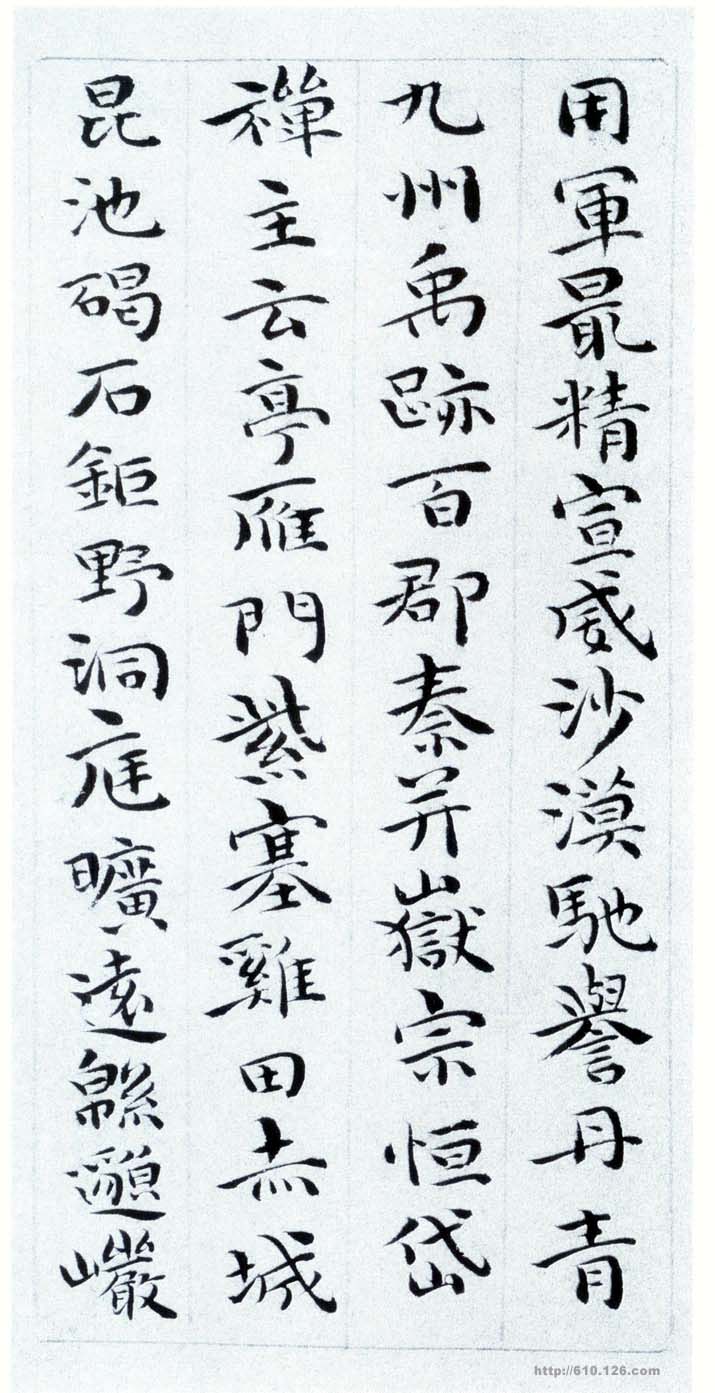 用軍最精宣威沙漠馳譽丹青
九州禹跡百郡秦并嶽宗恒岱
禪主云亭雁門紫塞雞田赤城
昆池碣石鉅野洞庭曠遠緜邈巖
http://610.126.com